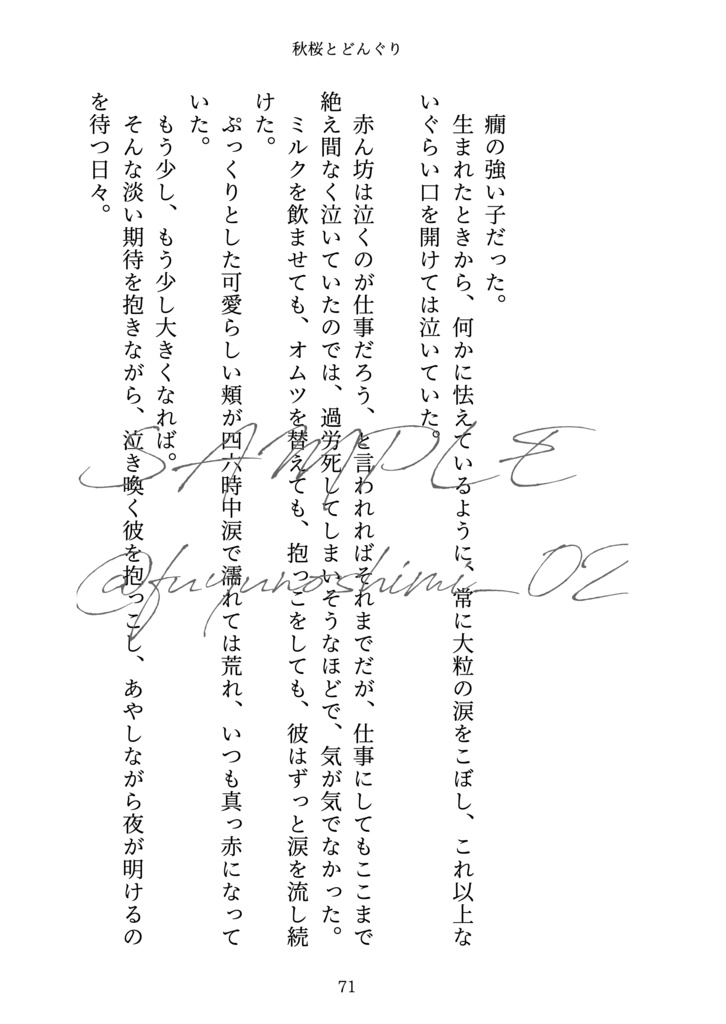 秋桜とどんぐり
　癇の強い子だった。
　生まれたときから、何かに怯えているように、常に大粒の涙をこぼし、これ以上な
いぐらい口を開けては泣いていた。
　赤ん坊は泣くのが仕事だろう、と言われればそれまでだが、仕事にしてもここまで
絶え間なく泣いていたのでは、過労死してしまいそうなほどで、気が気でなかった。
　ミルクを飲ませても、オムツを替えても、抱っこをしても、彼はずっと涙を流し続
けた。
　ぷっくりとした可愛らしい頬が四六時中涙で濡れては荒れ、いつも真っ赤になって
いた。
　もう少し、もう少し大きくなれば。
　そんな淡い期待を抱きながら、泣き喚く彼を抱っこし、あやしながら夜が明けるの
を待つ日々。
SAMPLE
@fuyunoshimi_02
71